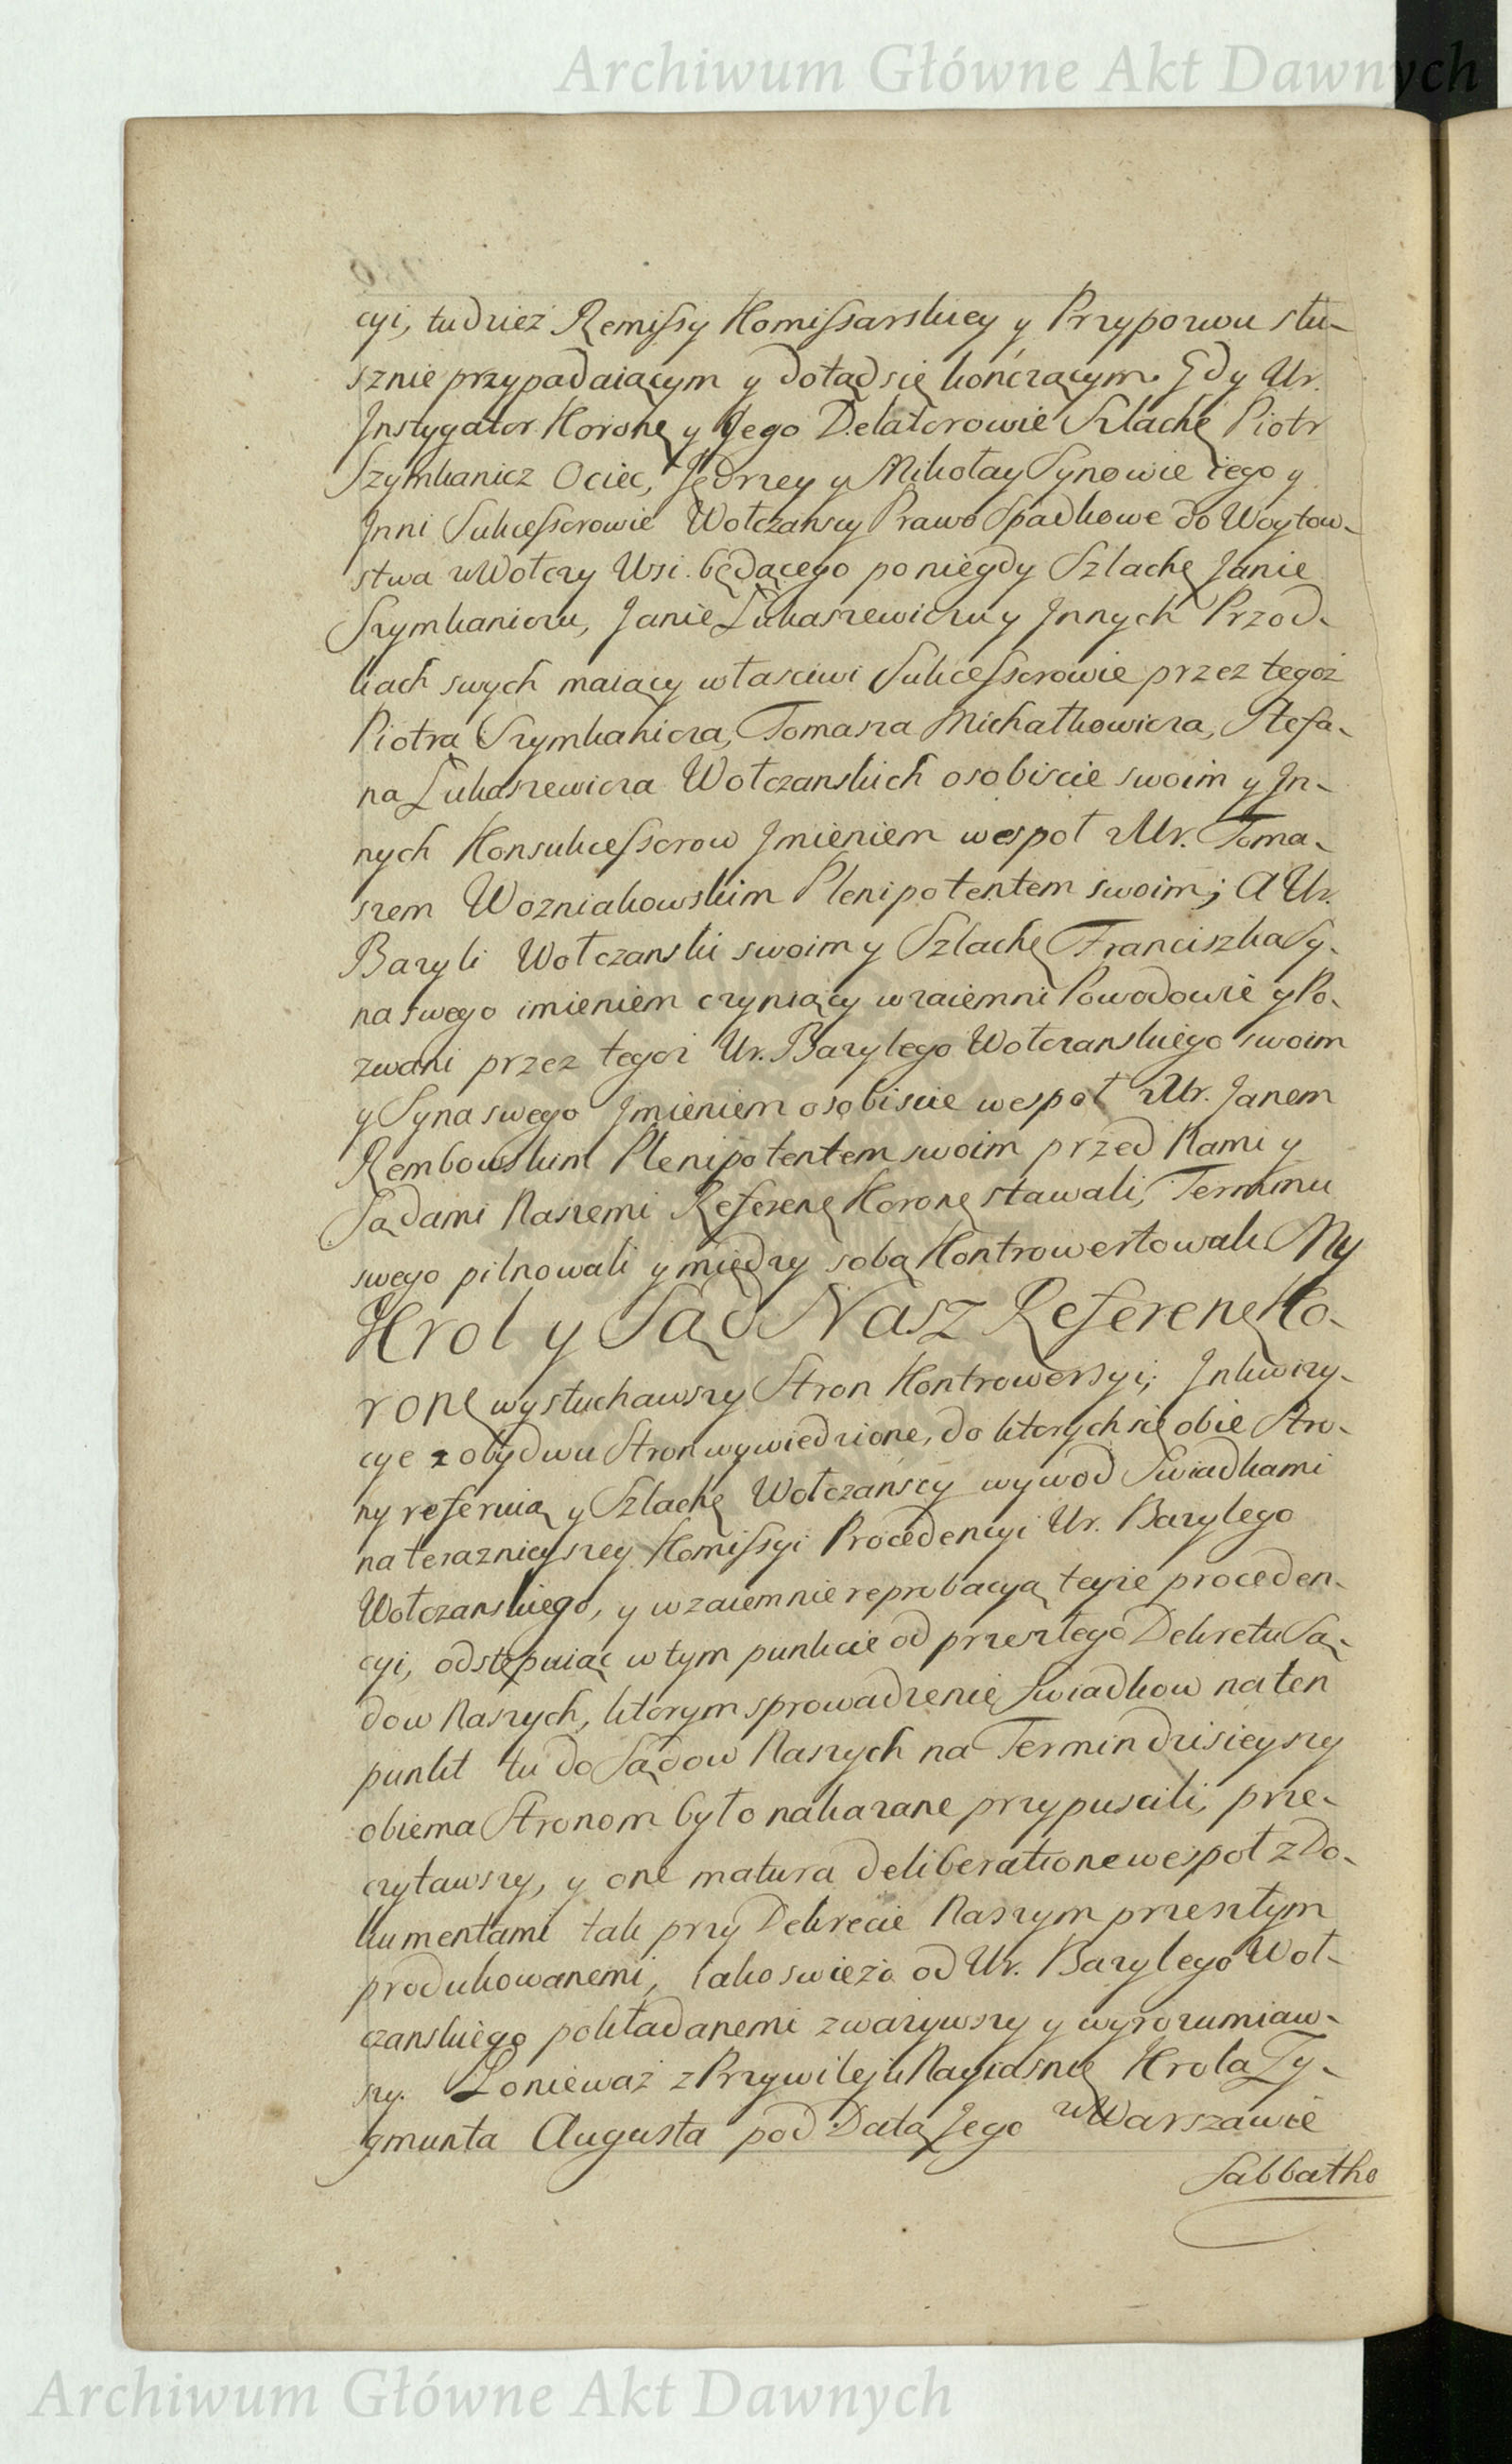 Archiwum Główne Akt Dawnych
cyi, tudzież Remissy Komissarskiey y Przypozwu słu-
sznie przypadaiącym y dotąd się kończącym. Gdy Ur.
Instygator Koronę y Jego Delatorowie Szlachę Piotr
Szymkanicz Ociec, Jędrzey y Mikołay Synowie iego y
Inni Sukcessorowie Wołczanscy Prawo Spadkowe do Woytow-
stwa w Wołczy Wsi będącego po niegdy Szlachę Janie
Szymkaniczu, Janie Łukaszewiczu y Innych Przod-
kach swych maiący własciwi Sukcessorowie przez tegoż
Piotra Szymkanicza, Tomasza Michałkowicza, Stefa-
na Łukaszewicza Wołczanskich osobiscie swoim y In-
nych Konsukcessorow Jmieniem wespoł z Ur. Toma-
szem Wozniakowskim Plenipotentem swoim; A Ur.
Bazyli Wołczanski swoim y Szlachę Franciszka Sy-
na swego imieniem czyniący wzaiemni Powodowie y Po-
zwani przez tegoż Ur. Bazylego Wołczanskiego swoim
y Syna swego Jmieniem osobiscie wespoł z Ur. Janem
Rembowskim Plenipotentem swoim przed Nami y
Sądami Naszemi Referenę Koronę stawali, Terminu
swego pilnowali y między sobą Kontrowertowali. My
Krol y Sąd Nasz Referenę Ko-
ronę wysłuchawszy Stron Kontrowersyi; Inkwizy-
cye z obydwu Stron wywiedzione, do ktorych się obie Stro-
ny referuią y Szlachę Wołczańscy wywod Swiadkami
na terazniejszey Komissyi Procedencyi Ur. Bazylego
Wołczanskiego, y wzaiemnie reprobacyą teyże proceden-
cyi, odstępuiąc w tym punkcie od przeszłego Dekretu Są-
dow Naszych, ktorym sprowadzenie Swiadkow na ten
punkt tu do Sądow Naszych na Termin dzisieyszy
obiema Stronom było nakazane przypuscili, prze-
czytawszy, y one matura deliberatione wespoł z Do-
kumentami tak przy Dekrecie Naszym przeszłym
produkowanemi, iako swieżo od Ur. Bazylego Woł-
czanskiego pokładanemi zważywszy y wyrozumiaw-
szy. Ponieważ z Przywileju Nayiasnię Krola Zy-
gmunta Augusta pod Datą Jego w Warszawie
Sabbatho
Archiwum Główne Akt Dawnych